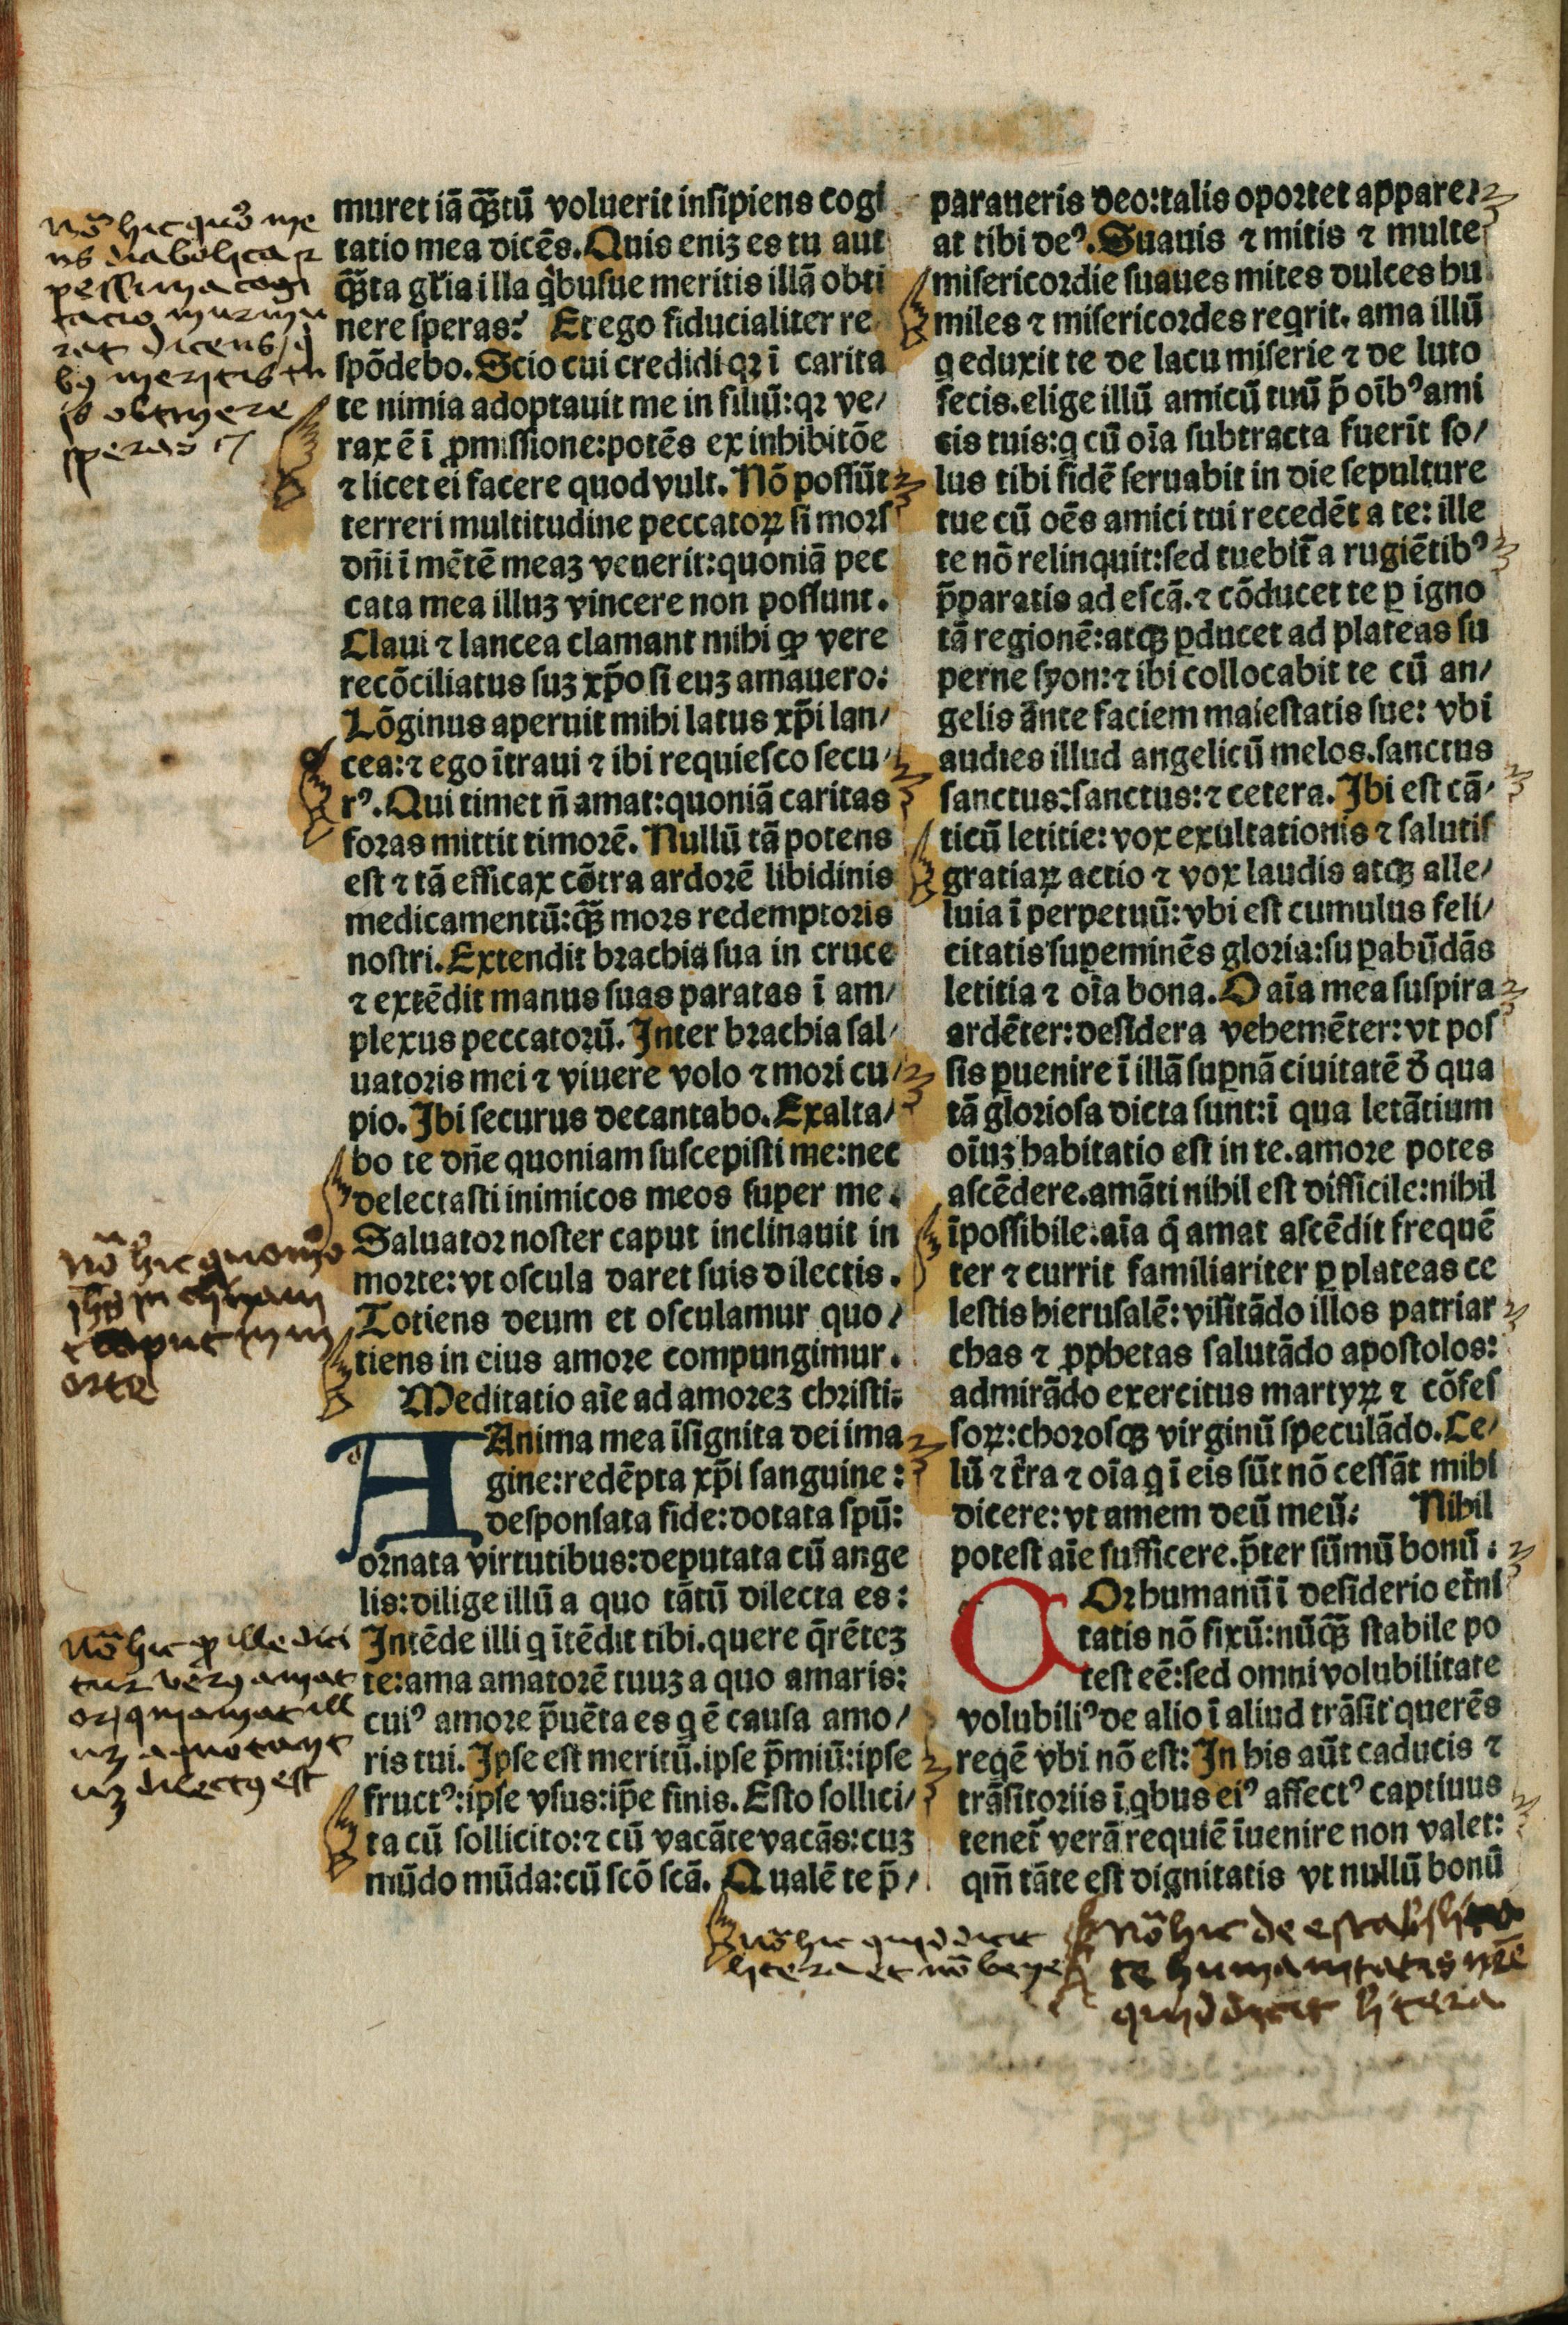 muret iā q̄ꝫtū voluerit insipiens cogi
tatio mea dicēs. Quis eniꝫ es tu aut
q̄ꝫta gl̄ia illa qͥbusue meritis illā obti
nere speras? Et ego fiducialiter re
spōdebo. Scio cui credidi qꝛ ī carita
te nimia adoptauit me in filiū: qꝛ ve/
rax ē ī ꝓmissione: potēs ex inhibitōe
⁊ licet ei facere quod vult. Nō possūt
terreri multitudine peccatoꝝ si mors
dn̄i ī mētē meaꝫ venerit: quoniā pec
cata mea illuꝫ vincere non possunt.
Claui ⁊ lancea clamant mihi ꝙ vere
recōciliatus suꝫ xp̄o si euꝫ amauero:
Lōginus aperuit mihi latus xp̄i lan/
cea: ⁊ ego ītraui ⁊ ibi requiesco secu/
rꝰ. Qui timet n̄ amat: quoniā caritas
foras mittit timorē. Nullū tā potens
est ⁊ tā efficax cōtra ardorē libidinis
medicamentū: q̄ꝫ mors redemptoris
nostri. Extendit brachia sua in cruce
⁊ extēdit manus suas paratas ī am/
plexus peccatorū. Inter brachia sal/
uatoris mei ⁊ viuere volo ⁊ mori cu/
pio. Ibi securus decantabo. Exalta/
bo te dn̄e quoniam suscepisti me: nec
delectasti inimicos meos super me.
Saluator noster caput inclinauit in
morte: vt oscula daret suis dilectis.
Totiens deum et osculamur quo/
tiens in eius amore compungimur.
Meditatio aīe ad amoreꝫ christi.
Anima mea īsignita dei ima
gine: redēpta xp̄i sanguine:
desponsata fide: dotata spū:
ornata virtutibus: deputata cū ange
lis: dilige illū a quo tātū dilecta es:
Intēde illi q ītēdit tibi. quere q̄rēteꝫ
te: ama amatorē tuuꝫ a quo amaris:
cuiꝰ amore p̄uēta es q ē causa amo/
ris tui. Ipse est meritū. ipse p̄miū: ipse
fructꝰ: ipse vsus: ip̄e finis. Esto sollici/
ta cū sollicito: ⁊ cū vacāte vacās: cuꝫ
mūdo mūda: cū scō scā. Qualē te p̄/
paraueris deo: talis oportet appare/
at tibi deꝰ. Suauis ⁊ mitis ⁊ multe
misericordie suaues mites dulces hu
miles ⁊ misericordes reqrit. ama illū
q eduxit te de lacu miserie ⁊ de luto
fecis. elige illū amicū tuū p̄ oīb̕ꝰ ami
cis tuis: q cū oīa subtracta fuerīt so/
lus tibi fidē seruabit in die sepulture
tue cū oēs amici tui recedēt a te: ille
te nō relinquit: sed tuebit̄ a rugiētibꝰ
p̄paratis ad escā. ⁊ cōducet te ꝑ igno
tā regionē: atqꝫ ꝑducet ad plateas su
perne syon: ⁊ ibi collocabit te cū an/
gelis ante faciem maiestatis sue: vbi
audies illud angelicū melos. sanctus
sanctus: sanctus: ⁊ cetera. Ibi est cā/
ticū letitie: vox exultationis ⁊ salutis
gratiaꝝ actio ⁊ vox laudis atqꝫ alle/
luia ī perpetuū: vbi est cumulus feli/
citatis suꝑeminēs gloria: suꝑabūdās
letitia ⁊ oīa bona. O aīa mea suspira
ardēter: desidera vehemēter: vt pos
sis ꝑuenire ī illā suꝑnā ciuitatē ð qua
tā gloriosa dicta sunt: ī qua letātium
oīuꝫ habitatio est in te. amore potes
ascēdere. amāti nihil est difficile: nihil
īpossibile. aīa q̄ amat ascēdit frequē
ter ⁊ currit familiariter ꝑ plateas ce
lestis hierusalē: visitādo illos patriar
chas ⁊ ꝓphetas salutādo apostolos:
admirādo exercitus martyꝝ ⁊ cōfes
soꝝ: chorosqꝫ virginū speculādo. Ce/
lū ⁊ t̄ra ⁊ oīa q ī eis sūt nō cessāt mihi
dicere: vt amem deū meū. Nihil
potest aīe sufficere. p̄ter sūmū bonū.
COr humanū ī desiderio et̄ni
tatis nō fixū: nūq̄ꝫ stabile po
test eē: sed omni volubilitate
volubiliꝰ de alio ī aliud trāsit querēs
reqē vbi nō est: In his aūt caducis ⁊
trāsitoriis ī qbus eiꝰ affectꝰ captiuus
tenet̄ verā requiē īuenire non valet:
qm̄ tāte est dignitatis vt nullū bonū
nō hic quō me
ns diabolica ⁊
pessima cogi
tacio murmu
rat dicens q
bꝰ meritis tu
obtinere
speras
nō hic quomō
ihs inclinam
caput in m
orte
nō hic ꝙ ille dici
tur verꝰ amat
or qui amat ill
uꝫ a quo tant
uꝫ dilectꝰ est
nō hic quid dicit
litera et nō bene
nō hic de
te humanitatis nr̄e
quid dicit litera